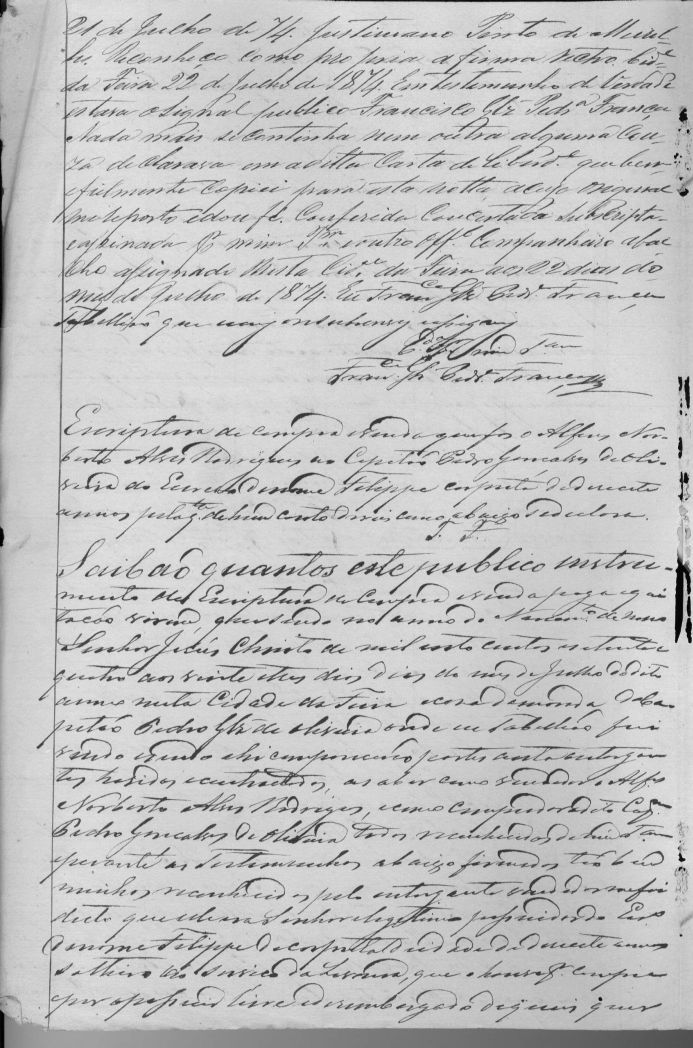 21 de Julho de 74. Justiniano Pinto de
Reconheço como propria a firma
da Feira 22 de Julho de 1874. Em testemunho de Verdade
estava o signal publico Francisco Glz Pedrª França
e Nada mais se continha nem outra alguma Cou-
za declarava em a ditta Carta de Liberdᵉ que bem
e fielmente Copiei para esta notta, a cujo original
me reporto e dou fé. Conferida Concertada Subscripta
e assinada pr mim Tam e outro offᵉ Companheiro abai-
cho assignado Nesta Cidᵉ da Feira aos 22 dias do
mez de Julho de 1874. Eu Francº Glz Pedrª França
Tabellião que
Francº Glz Pedrª França
Escriptura de compra e venda que faz o Alferes Nor-
berto Alves Rodrigues ao Capitão Pedro Gonçalves de Oli-
veira do Escravo de nome Filippe com preto de dezesete
annos pela qᵗª de hum conto de reis como abaixo se declara.
Saibaõ quantos este publico instru-
mento de Escriptura de Compra e venda paga e qui-
tação virem, que sendo no anno do Nascimᵗº de nosso
Senhor Jesús Christo de mil oito centos e setenta e
quatro aos vinte e tres dias do mes de Julho do dito
anno nesta Cidade da Feira e casa de morada do Ca-
pitão Pedro Glz de Oliveira onde eu Tabellião fui
vindo e sendo ahi compareceraõ partes outorgan-
tes havidos e contractados, a saber como vendedor o Alfes
Norberto Alves Rodriges, e como comprador o dito Capᵐ
Pedro Gonçalves de Oliveira todos reconhecidos de mim Tam
perante as Testemunhas abaixo firmadas
minhas reconhecidas pelo outorgante vendedor me foi
dicto que elle era Senhor e legitimo possuidor do Escº
de nome Filippe de cor preta de idade de dezesete annos
solteiro do serviço da Lavoura, que o houve pr compra
por o possuir livre e desembargado de quais quer